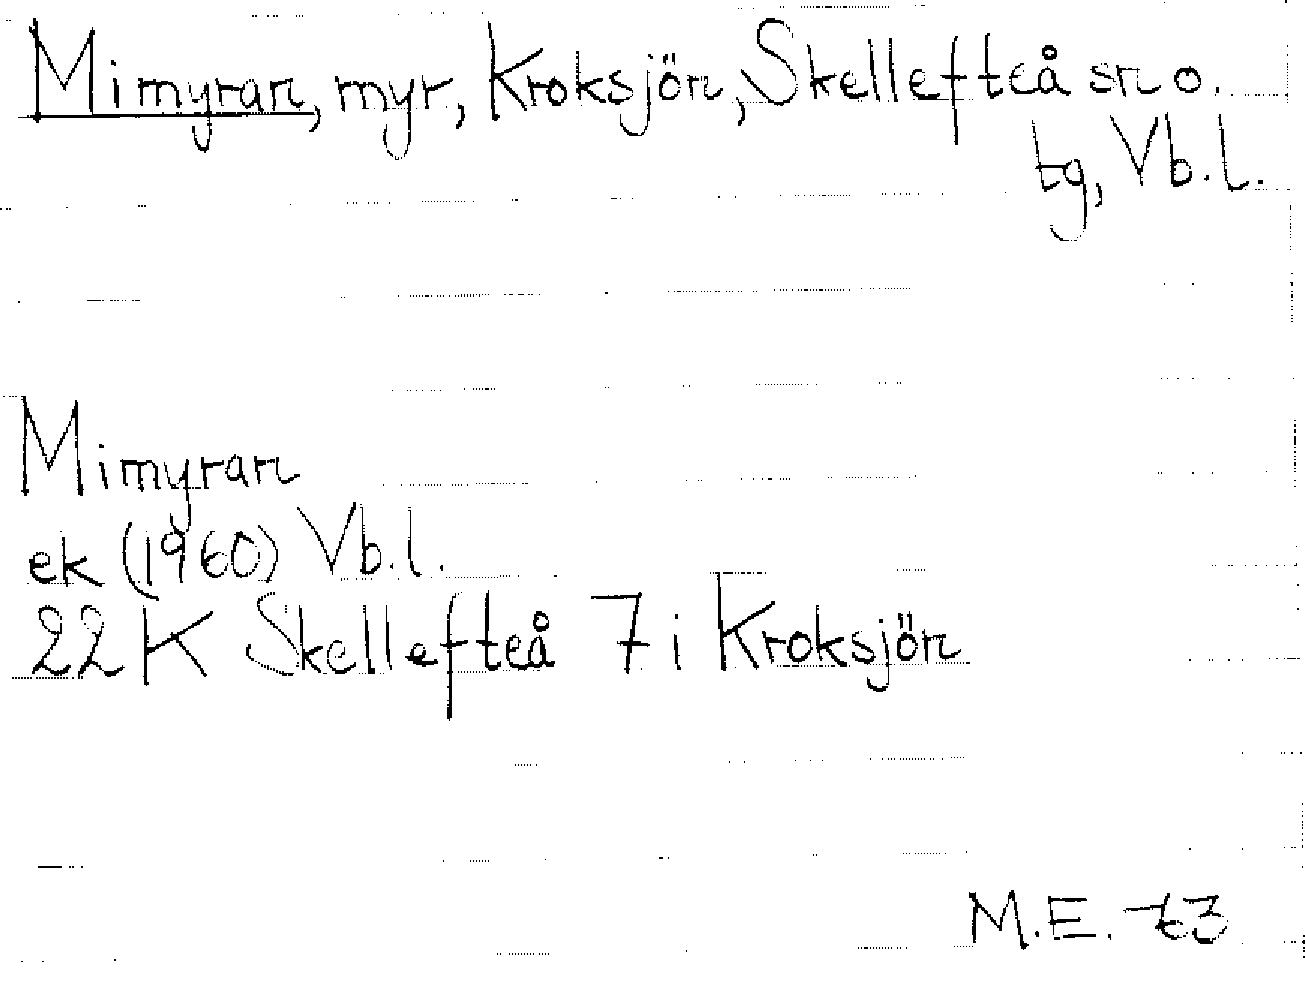 Mimyran, myr, Kroksjön, Skellefteå sn o.
tg, Vb. l.
Mimyran
ek (1960) Vb. l.
22 K Skellefteå 7 i Kroksjön
M.E. -63